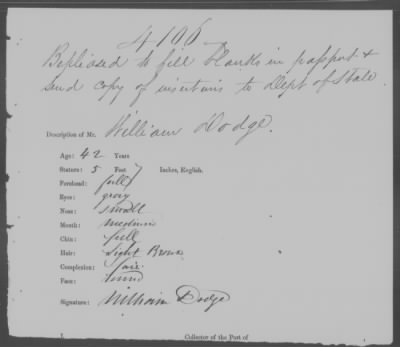 4106
Be pleased to fill blanks in passport &
send copy of insertions to Dept of State
Description of Mr. William Dodge.
Age: 42 Years
Stature: 5 Feet 7 Inches, English.
Forehead: full
Eyes: gray
Nose: small
Mouth: medium
Chin: full
Hair: Light Brown
Complexion: fair
Face: round
Signature: William Dodge
Collector of the Port of